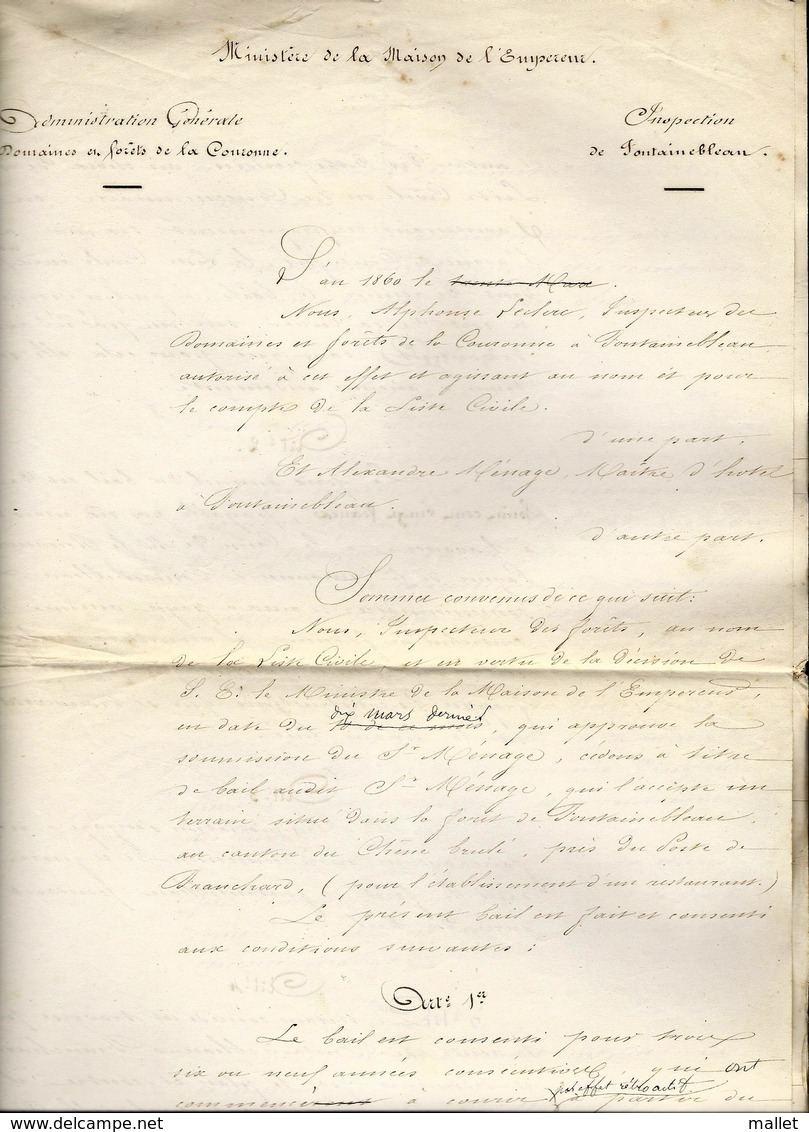 Ministère de la Maison de l'Empereur.
Administration Générale
Domaines et forêts de la Couronne.
Inspection
de Fontainebleau.
L'an 1860 le trente Mars.
Nous, Alphonse Leclerc, Inspecteur des
Domaines et forêts de la Couronne à Fontainebleau
autorisé à cet effet et agissant au nom et pour
le compte de la Liste Civile.
d'une part.
Et Alexandre Ménage, Maître d'hotel
à Fontainebleau.
d'autre part.
Sommes convenus de ce qui suit:
Nous, Inspecteur des forêts, au nom
de la Liste Civile, et en vertu de la décision de
S. E. le Ministre de la Maison de l'Empereur,
dix mars dernier
en date du 10 de ce mois, qui approuve la
soumission du Sr Ménage, cédons à titre
de bail audit Sr Ménage, qui l'accepte un
terrain situé dans la forêt de Fontainebleau,
au canton du Chêne brulé, près du Poste de
Franchard, (pour l'établissement d'un restaurant.)
Le présent bail est fait et consenti
aux conditions suivantes:
Arte 1er
Le bail est consenti pour trois
six ou neuf années consécutives, qui ont
par effet rétroactif
à courir à partir du
delcampe.net
mallet